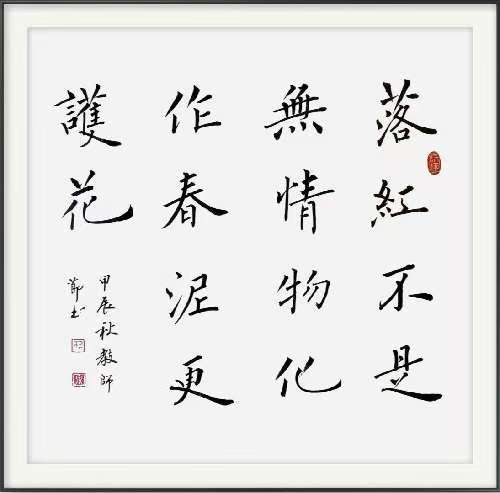 落紅不是
無情物化
作春泥更
護花
甲辰秋教師
節书